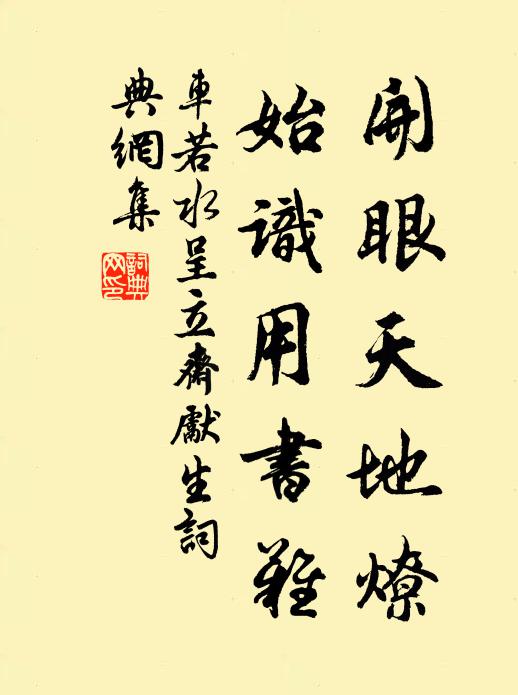 開眼天地燎
始識用書難
車若水呈立齋獻生詞
典網集
詞典網印